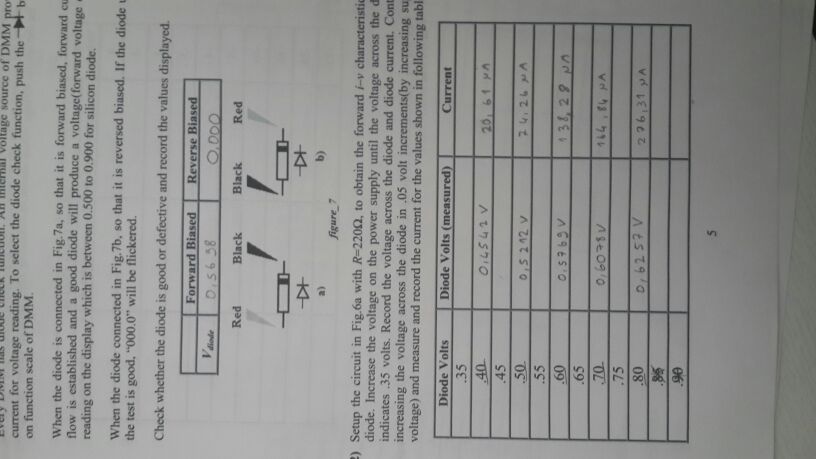 Every DMM has diode check function. An internal voltage source of DMM
current for voltage reading. To select the diode check function, push the
on function scale of DMM.
When the diode is connected in Fig.7a, so that it is forward biased, forward
flow is established and a good diode will produce a voltage(forward voltage
reading on the display which is between 0.500 to 0.900 for silicon diode.
When the diode connected in Fig.7b, so that it is reversed biased. If the diode
the test is good, "000.0" will be flickered.
Check whether the diode is good or defective and record the values displayed.
Forward Biased Reverse Biased
Vdiode 0,5698 0,000
Red Black Black Red
a) b)
figure_7
2) Setup the circuit in Fig.6a with R=220Ω, to obtain the forward i-v characteristic
diode. Increase the voltage on the power supply until the voltage across the d
indicates .35 volts. Record the voltage across the diode and diode current. Cont
increasing the voltage across the diode in .05 volt increments(by increasing su
voltage) and measure and record the current for the values shown in following tabl
Diode Volts Diode Volts (measured) Current
.35
.40 0,4542 V 20,61 µA
.45
.50 0,5212 V 74,26 µA
.55
.60 0,5769 V 138,28 µA
.65
.70 0,6078 V 164,84 µA
.75
.80 0,6257 V 276,31 µA
.85
.90
5